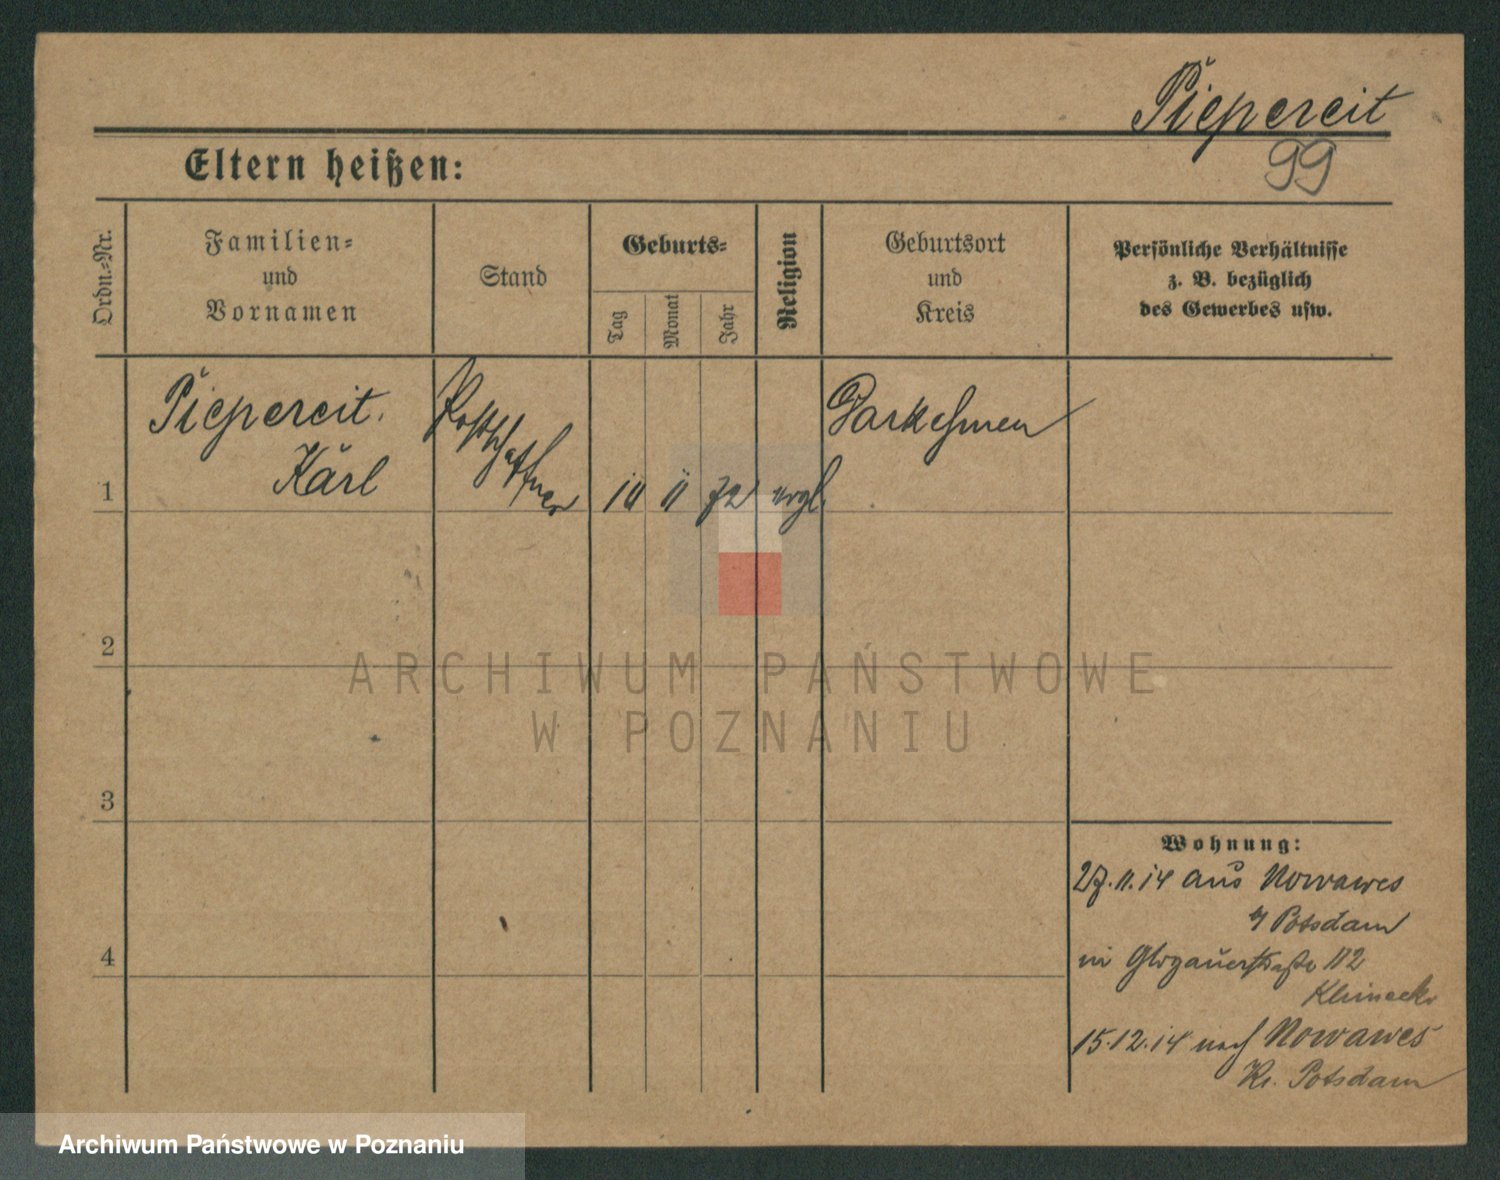 Piepereit
99
Eltern heißen:
Ordn.-Nr.
Familien-
und
Vornamen
Stand
Geburts-
Tag
Monat
Jahr
Religion
Geburtsort
und
Kreis
Persönliche Verhältnisse
z. B. bezüglich
des Gewerbes usw.
Piepereit.
Karl
Postschaffner
72
evgl.
Darkehmen
1
2
3
4
Wohnung:
27.11.14 aus Nowawes
b/ Potsdam
in Glogauerstraße 112
15.12.14 nach Nowawes
Kr. Potsdam
ARCHIWUM PAŃSTWOWE
W POZNANIU
Archiwum Państwowe w Poznaniu